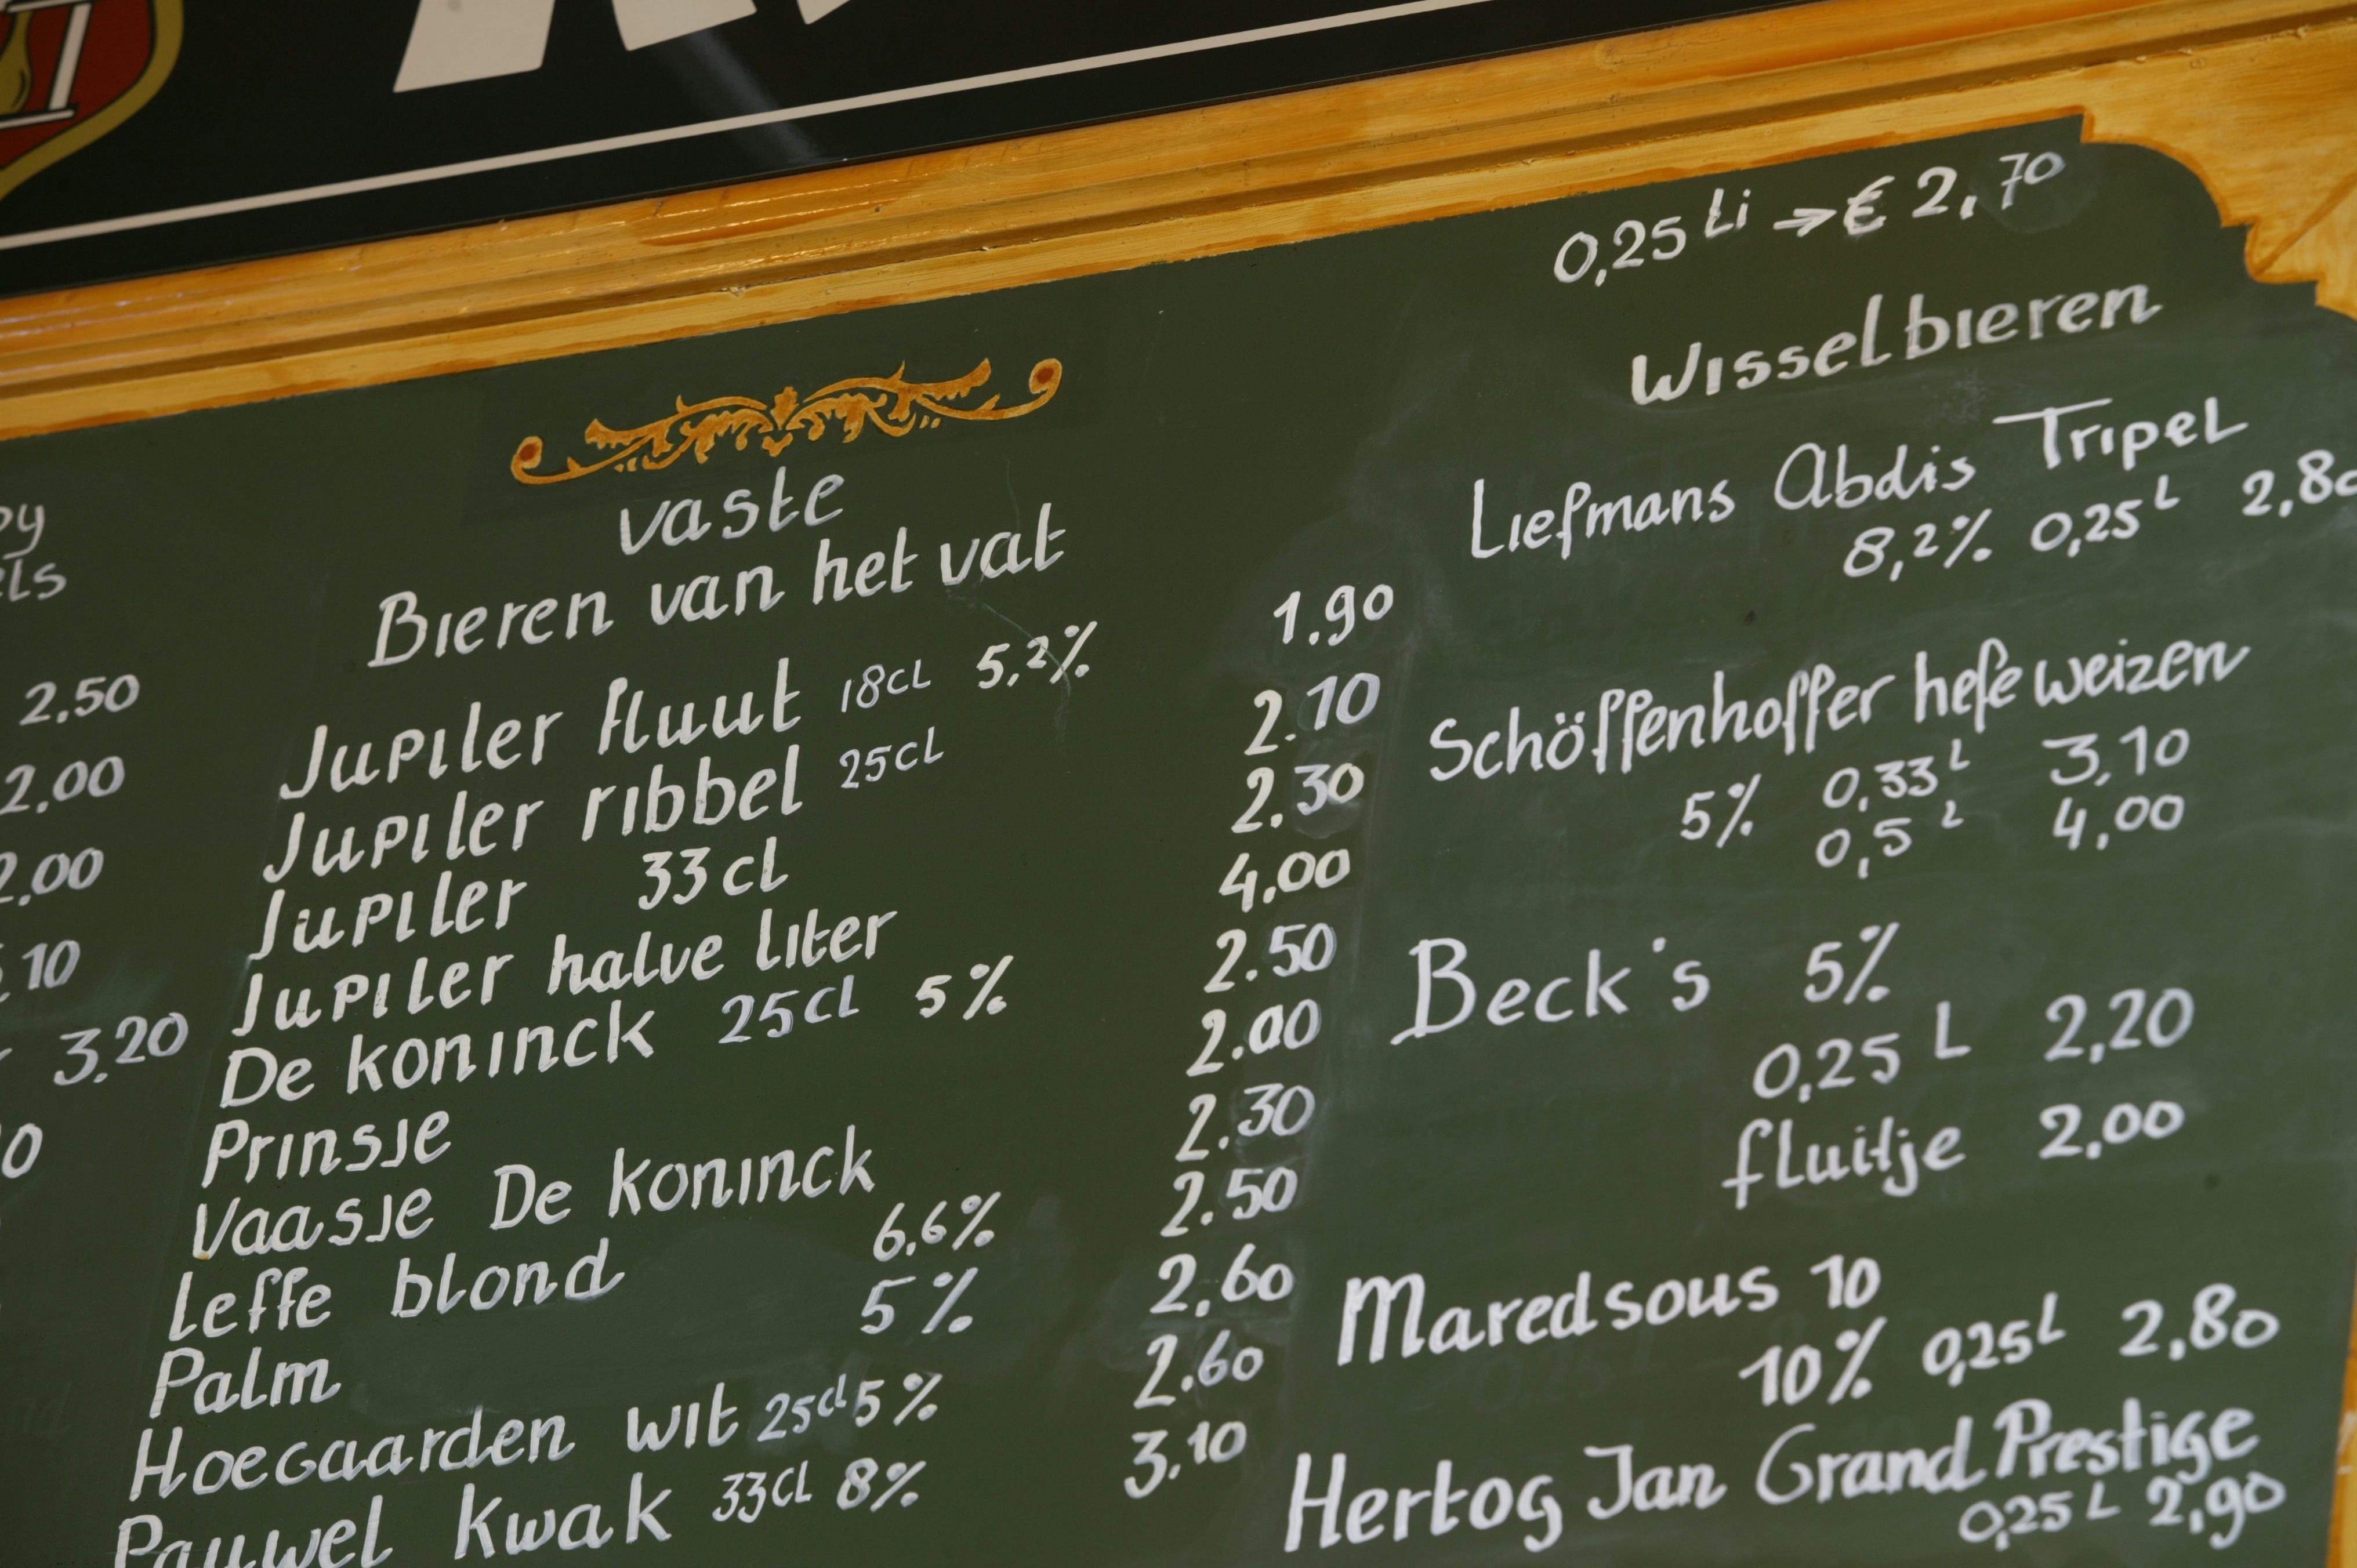 2.50
2.00
2.00
10
3.20
vaste
Bieren van het vat
Jupiler fluut 18cl 5,2% 1.90
Jupiler ribbel 25cl 2.10
Jupiler 33cl 2.30
Jupiler halve liter 4.00
De koninck 25cl 5% 2.50
Prinsje 2.00
Vaasje De koninck 2.30
Leffe blond 6.6% 2.50
Palm 5% 2,60
Hoegaarden wit 25cl 5% 2.60
Pauwel Kwak 33cl 8% 3.10
0,25 Li → € 2,70
Wisselbieren
Liefmans Abdis Tripel
8,2% 0,25 L 2,80
Schöffenhoffer hefe weizen
5% 0,33 L 3,10
0,5 L 4,00
Beck's 5%
0,25 L 2,20
fluitje 2.00
Maredsous 10
10% 0,25 L 2,80
Hertog Jan Grand Prestige
0,25 L 2,90